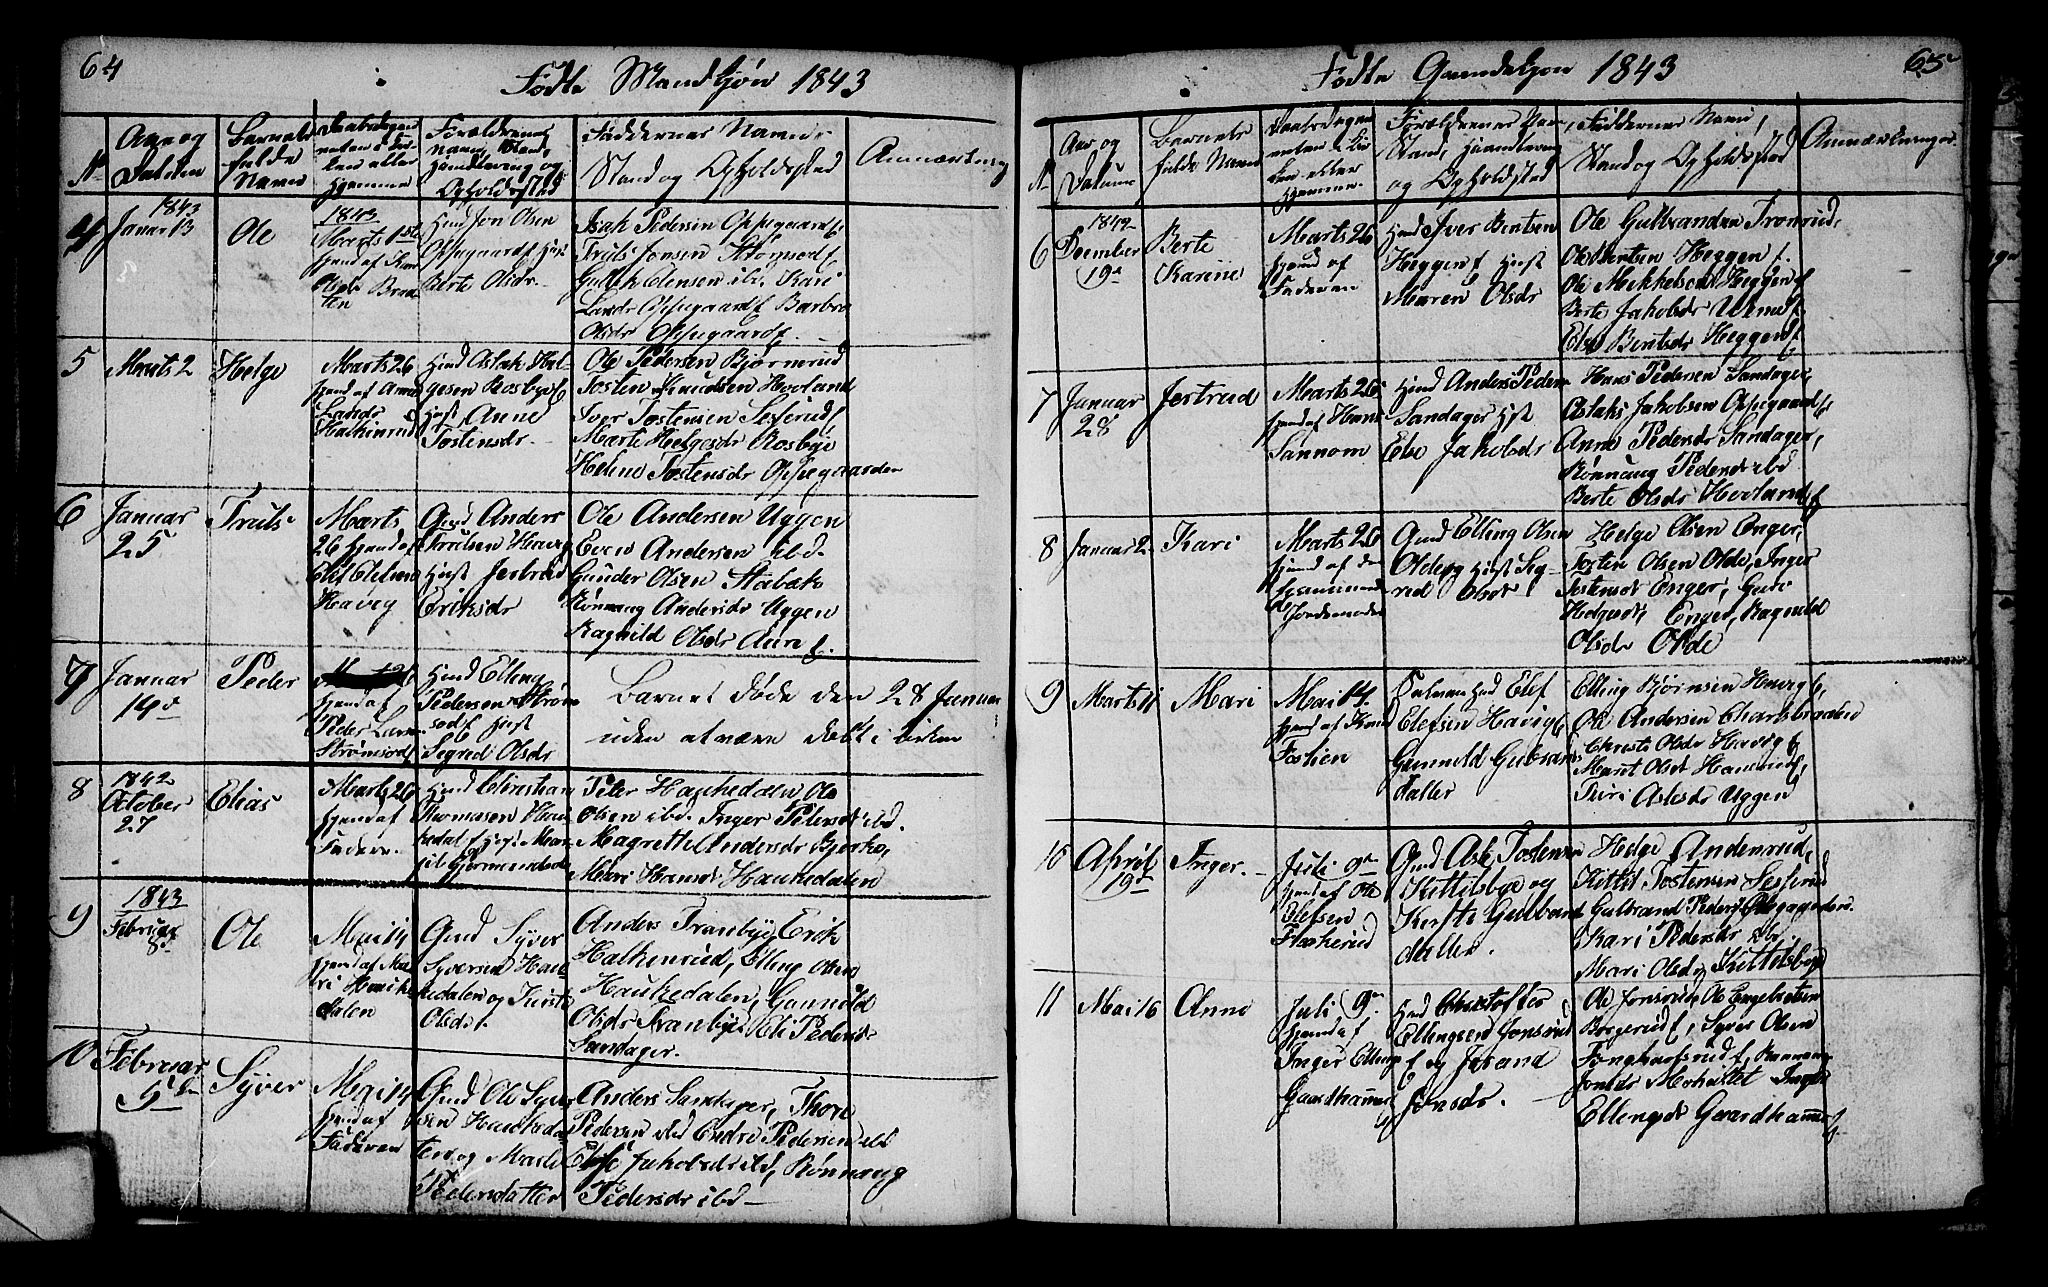 64
Fødte Mandkjøn 1843
No
Aar og
Datum
Barnets
fulde
Navn
Daabsdagen
enten i Kir-
ken eller
hjemme
Forældrenes
Navn, Stand,
Haandtering og
Opholdssted
Faddernes Navne
Stand og Opholdssted
Anmærkning
4
1843
Januar 13
Ole
1843
Marts 1ste
hjemd af
Olsdr Braa-
ten
Hmd Jon Olsen
Oppegaard hust
Berte Olsdr.
Isak Pedersen Oppegaard
Truls Jonsen Strømsod
Gulek Olensen ibd. Kari
Larsdr Oppegaard Barbro
Olsdr Oppegaard
5
Marts 2
Helge
Marts 26
hjemd af Anne
Larsdr
Halkinrud
Hmd Aslak Hel-
gesen Rosbye
Hust Anne
Tostensdr.
Ole Pedersen Bjørnerud
Tosten Knudsen Hovland
Iver Tostensen Seserud
Marte Helgesdr Rosbye
Helene Tostensdr Oppegaarden
6
Januar
25
Truls
Marts
26 hjemd af
Elef Elefsen
Havig
Gmd Anders
Trulsen Havig
Hust Jertrud
Eriksdr
Ole Andersen Uggen
Even Andersen ibd.
Gunder Olsen Stabæk
Rønnaug Andersdr Uggen
Ragnild Olsdr Aure
7
Januar
14d
Peder
hjemd af
Peder Lars.
Strømsod
Hmd Elling
Pedersen Strøm-
sod hust
Segred Olsdr
Barnet døde den 28 Januar
uden at være døbt i kirken
8
1842
October
27
Elias
Marts 26
hjemd af
Faderen.
Hmd Christian
Thomasen Hau-
kedal Hust Mar-
Peter Haukedalen Ole
Olsen ibd. Inger Pedersdr ibd.
Magrethe Andersdr Bjerke,
Mari Hansdr Haukedalen
9
1843
Februar
8d
Ole
Mai 14
hjemd af Ma-
ri Hauke
dalen
Gmd Syver
Syversen Hau-
kedalen og Kirste
Olsdr.
Anders Tranbye, Erik
Halkenrud, Elling Olsen
Haukedalen, Gunnild
Olsdr Tranbye Eli Pedersdr
Sandager.
10
Februar
5te
Syver
Mai 14
hjemd af
Faderen
Gmd Ole Syver
sen Haukeda-
len og Marte
Pedersdatter
Anders Sandager, Thore
Pedersen ibd Endre Pedersen ibd
Else Jakobsdr ibd, Rønnaug
Pedersdr ibd
65
Fødte Qvindekjøn 1843
No
Aar og
Datum
Barnets
fulde Navn
Daabsdagen
enten i Kir
ken eller
hjemme.
Forældrenes Navn,
Stand, Haandtering
og Opholdssted
Faddernes Navn,
Stand og Opholdssted
Anmærkninger
6
1842
December
19d
Berte
Karine
Marts 26
hjemd af
Faderen
Hmd Iver Bentsen
Heggen Hust
Maren Olsdr
Ole Gulbrandsen Tronrud,
Ole Bentsen Heggen
Ole Mikkelsen Heggen
Berte Jakobsdr
Else Bentsdr Heggen
7
Januar
28
Jertrud
Marts 26
hjemd af Hans
Sannom
Hmd Anders Peders
Sandager Hust
Else Jakobsdr
Hans Pedersen Sandager,
Aslak Jakobsen Oppegaard
Anne Pedersdr Sandager,
Rønnaug Pedersdr ibd
Berte Olsdr Hovland
8
Januar 2
Kari
Marts 26
hjemd af
Jordemoder
Gmd Elling Olsen
Olde og Hust Sig-
red Olsdr
Helge Olsen Enger,
Tosten Olsen Olde, Inger
Tostensdr Enger, Guri
Helgesdr Enger, Ragnild
Olsdr Olde
9
Marts 11
Mari
Mai 14.
hjemd af
Fostien
Hmd Elef
Elefsen Havig
Gunnild Gulbrans
datter
Elling Bjørnsen Havig
Ole Andersen
Christi Olsdr Havig
Marit Olsdr
Turi Aslesdr Uggen
10
April
19d
Inger.
Juli 9de
hjemd af Ole
Elefsen
Flaskerud
Gmd Asle Tostensen
Kittilsbye og
Kirsti Gulbrand
datter.
Helge Andersrud,
Kittil Tostensen Seserud
Gulbrand Pedersen
Kari Pedersdr ibd.
Mari Olsdr Kittilsbye
11
Mai 16
Anne
Juli 9de
hjemd af
Inger Elling
Gaardhammer
Hmd Christoffer
Ellingsen Jonsrud
og Jørand
Jonsdr.
Ole Jonsrud Ole Engebretsen
Borgerud, Syver Olsen
Jonsdr Inger
Ellingsdr Gaardhammer